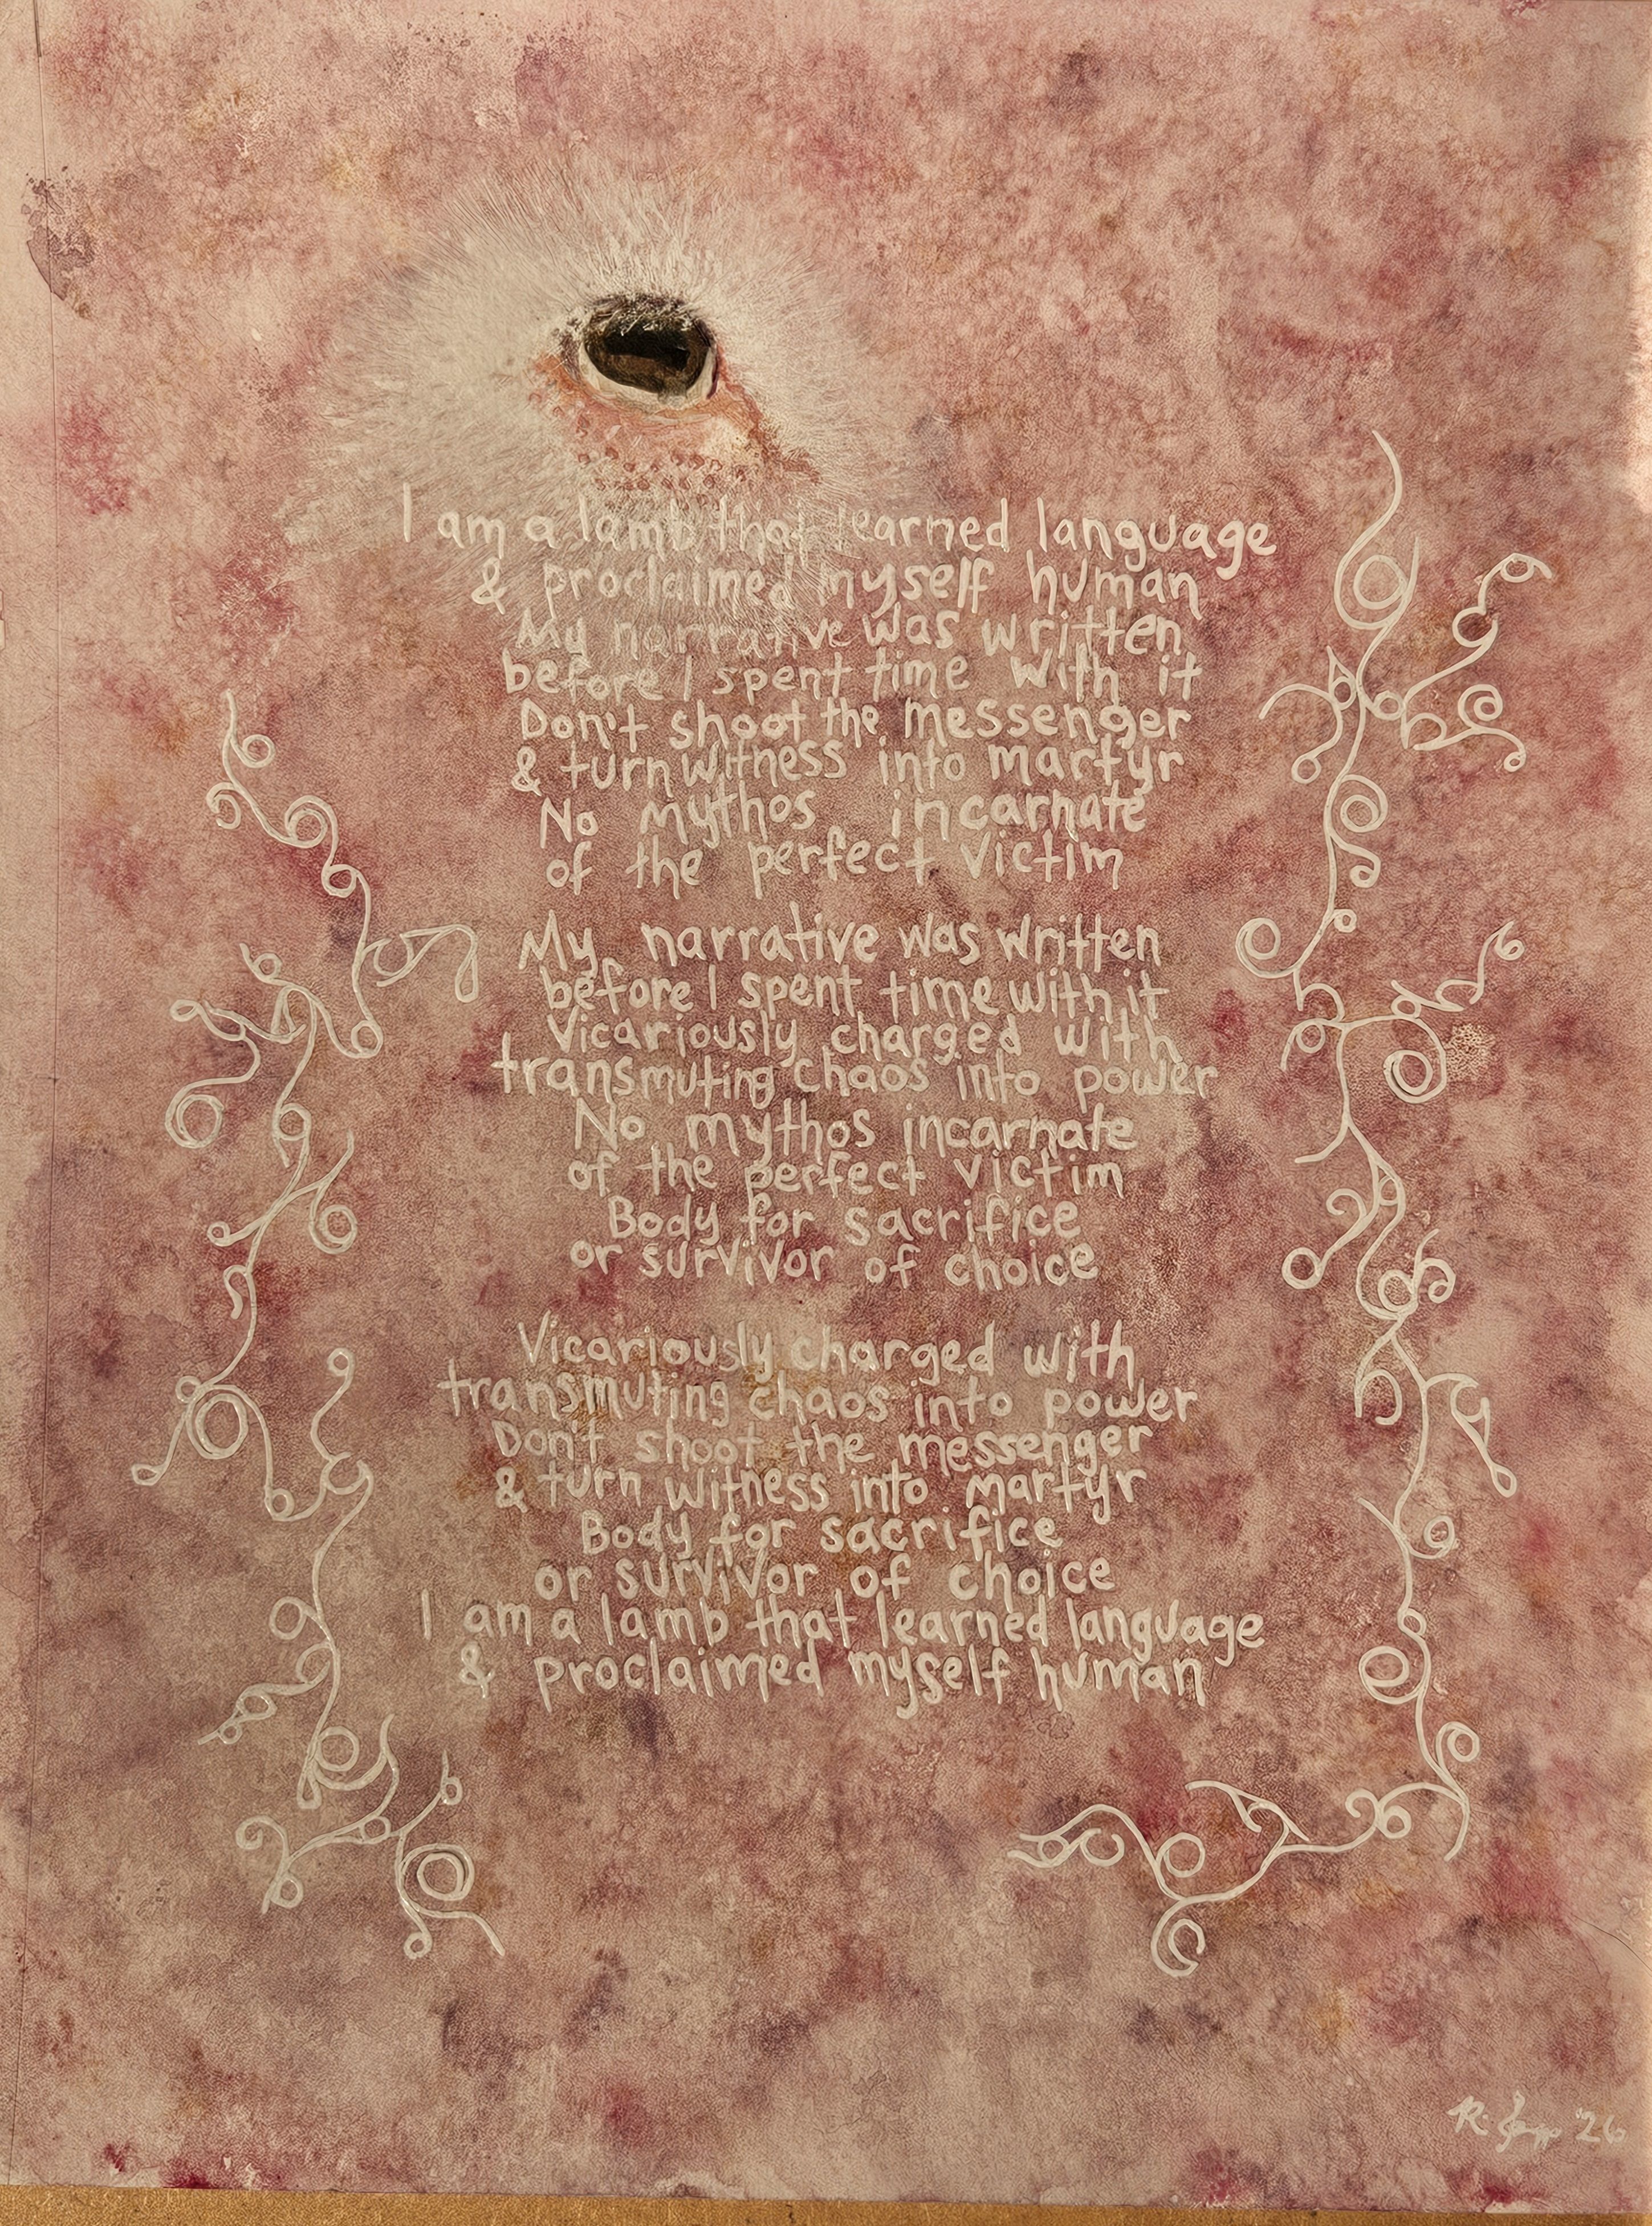 I am a lamb that learned language
& proclaimed myself human
My narrative was written
before I spent time with it
Don't shoot the messenger
& turn witness into martyr
No mythos incarnate
of the perfect victim
My narrative was written
before I spent time with it
Vicariously charged with
transmuting chaos into power
No mythos incarnate
of the perfect victim
Body for sacrifice
or survivor of choice
Vicariously charged with
transmuting chaos into power
Don't shoot the messenger
& turn witness into martyr
Body for sacrifice
or survivor of choice
I am a lamb that learned language
& proclaimed myself human
R. '26